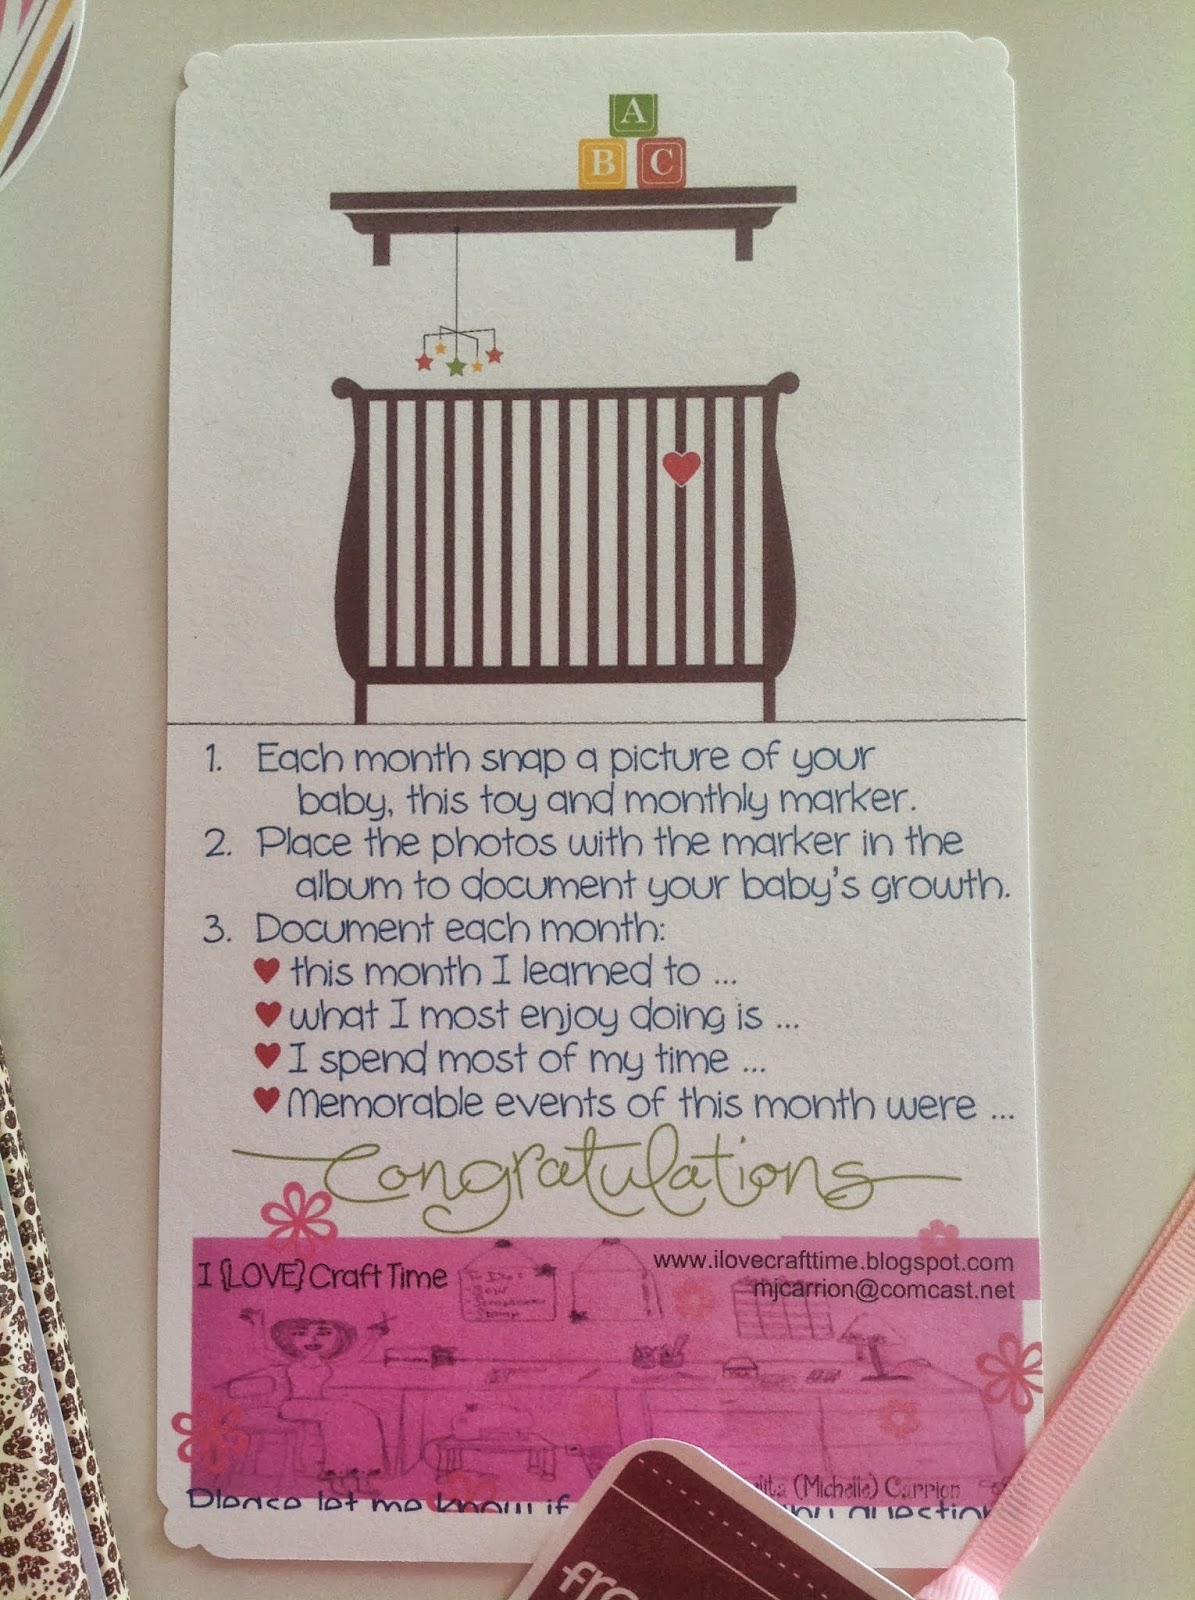 A
B C
1. Each month snap a picture of your
baby, this toy and monthly marker.
2. Place the photos with the marker in the
album to document your baby's growth.
3. Document each month:
this month I learned to ...
what I most enjoy doing is ...
I spend most of my time ...
Memorable events of this month were ...
Congratulations
I {LOVE} Craft Time
www.ilovecrafttime.blogspot.com
mjcarrion@comcast.net
To Do:
- Sew
- Scrapbook
- Stamp
(Michelle) Carrion
Please let me know if